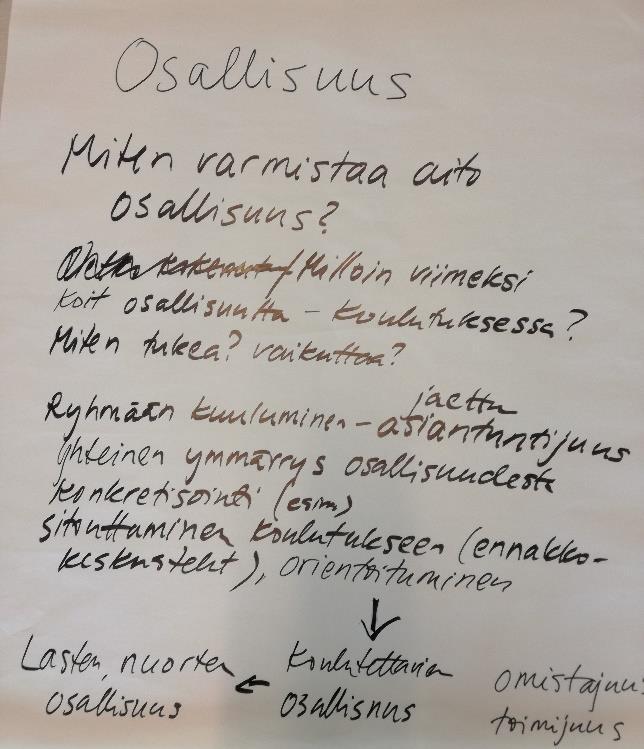 Osallisuus
Miten varmistaa aito
osallisuus?
Milloin viimeksi
koit osallisuutta – koulutuksessa?
Miten tukea? vaikuttaa?
jaettu
Ryhmään kuuluminen – asiantuntijuus
Yhteinen ymmärrys osallisuudesta
Konkretisointi (esim)
sitouttaminen koulutukseen (ennakko-
keskustelut), orientoituminen
Lasten, nuorten
osallisuus
Koulutettavien
osallisuus
omistajuus
toimijuus